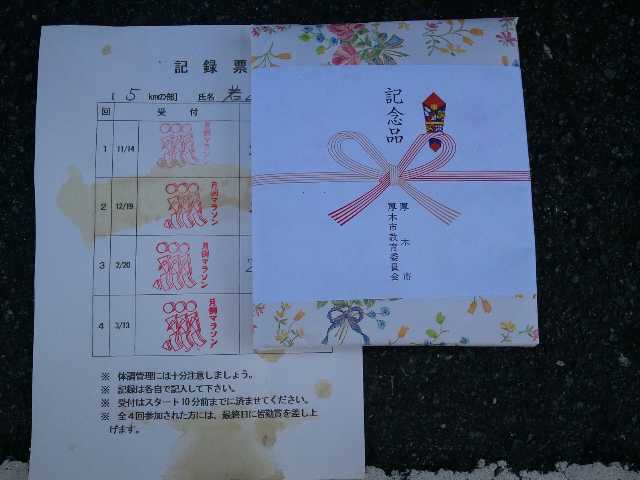 記録票
[ 5 kmの部] 氏名
回 受付
1 11/14 月例マラソン
2 12/19 月例マラソン
3 2/20 月例マラソン
4 3/13 月例マラソン
※ 体調管理には十分注意しましょう。
※ 記録は各自で記入して下さい。
※ 受付はスタート10分前までに済ませてください。
※ 全4回参加された方には、最終日に皆勤賞を差し上
げます。
記念品
厚木市
厚木市教育委員会